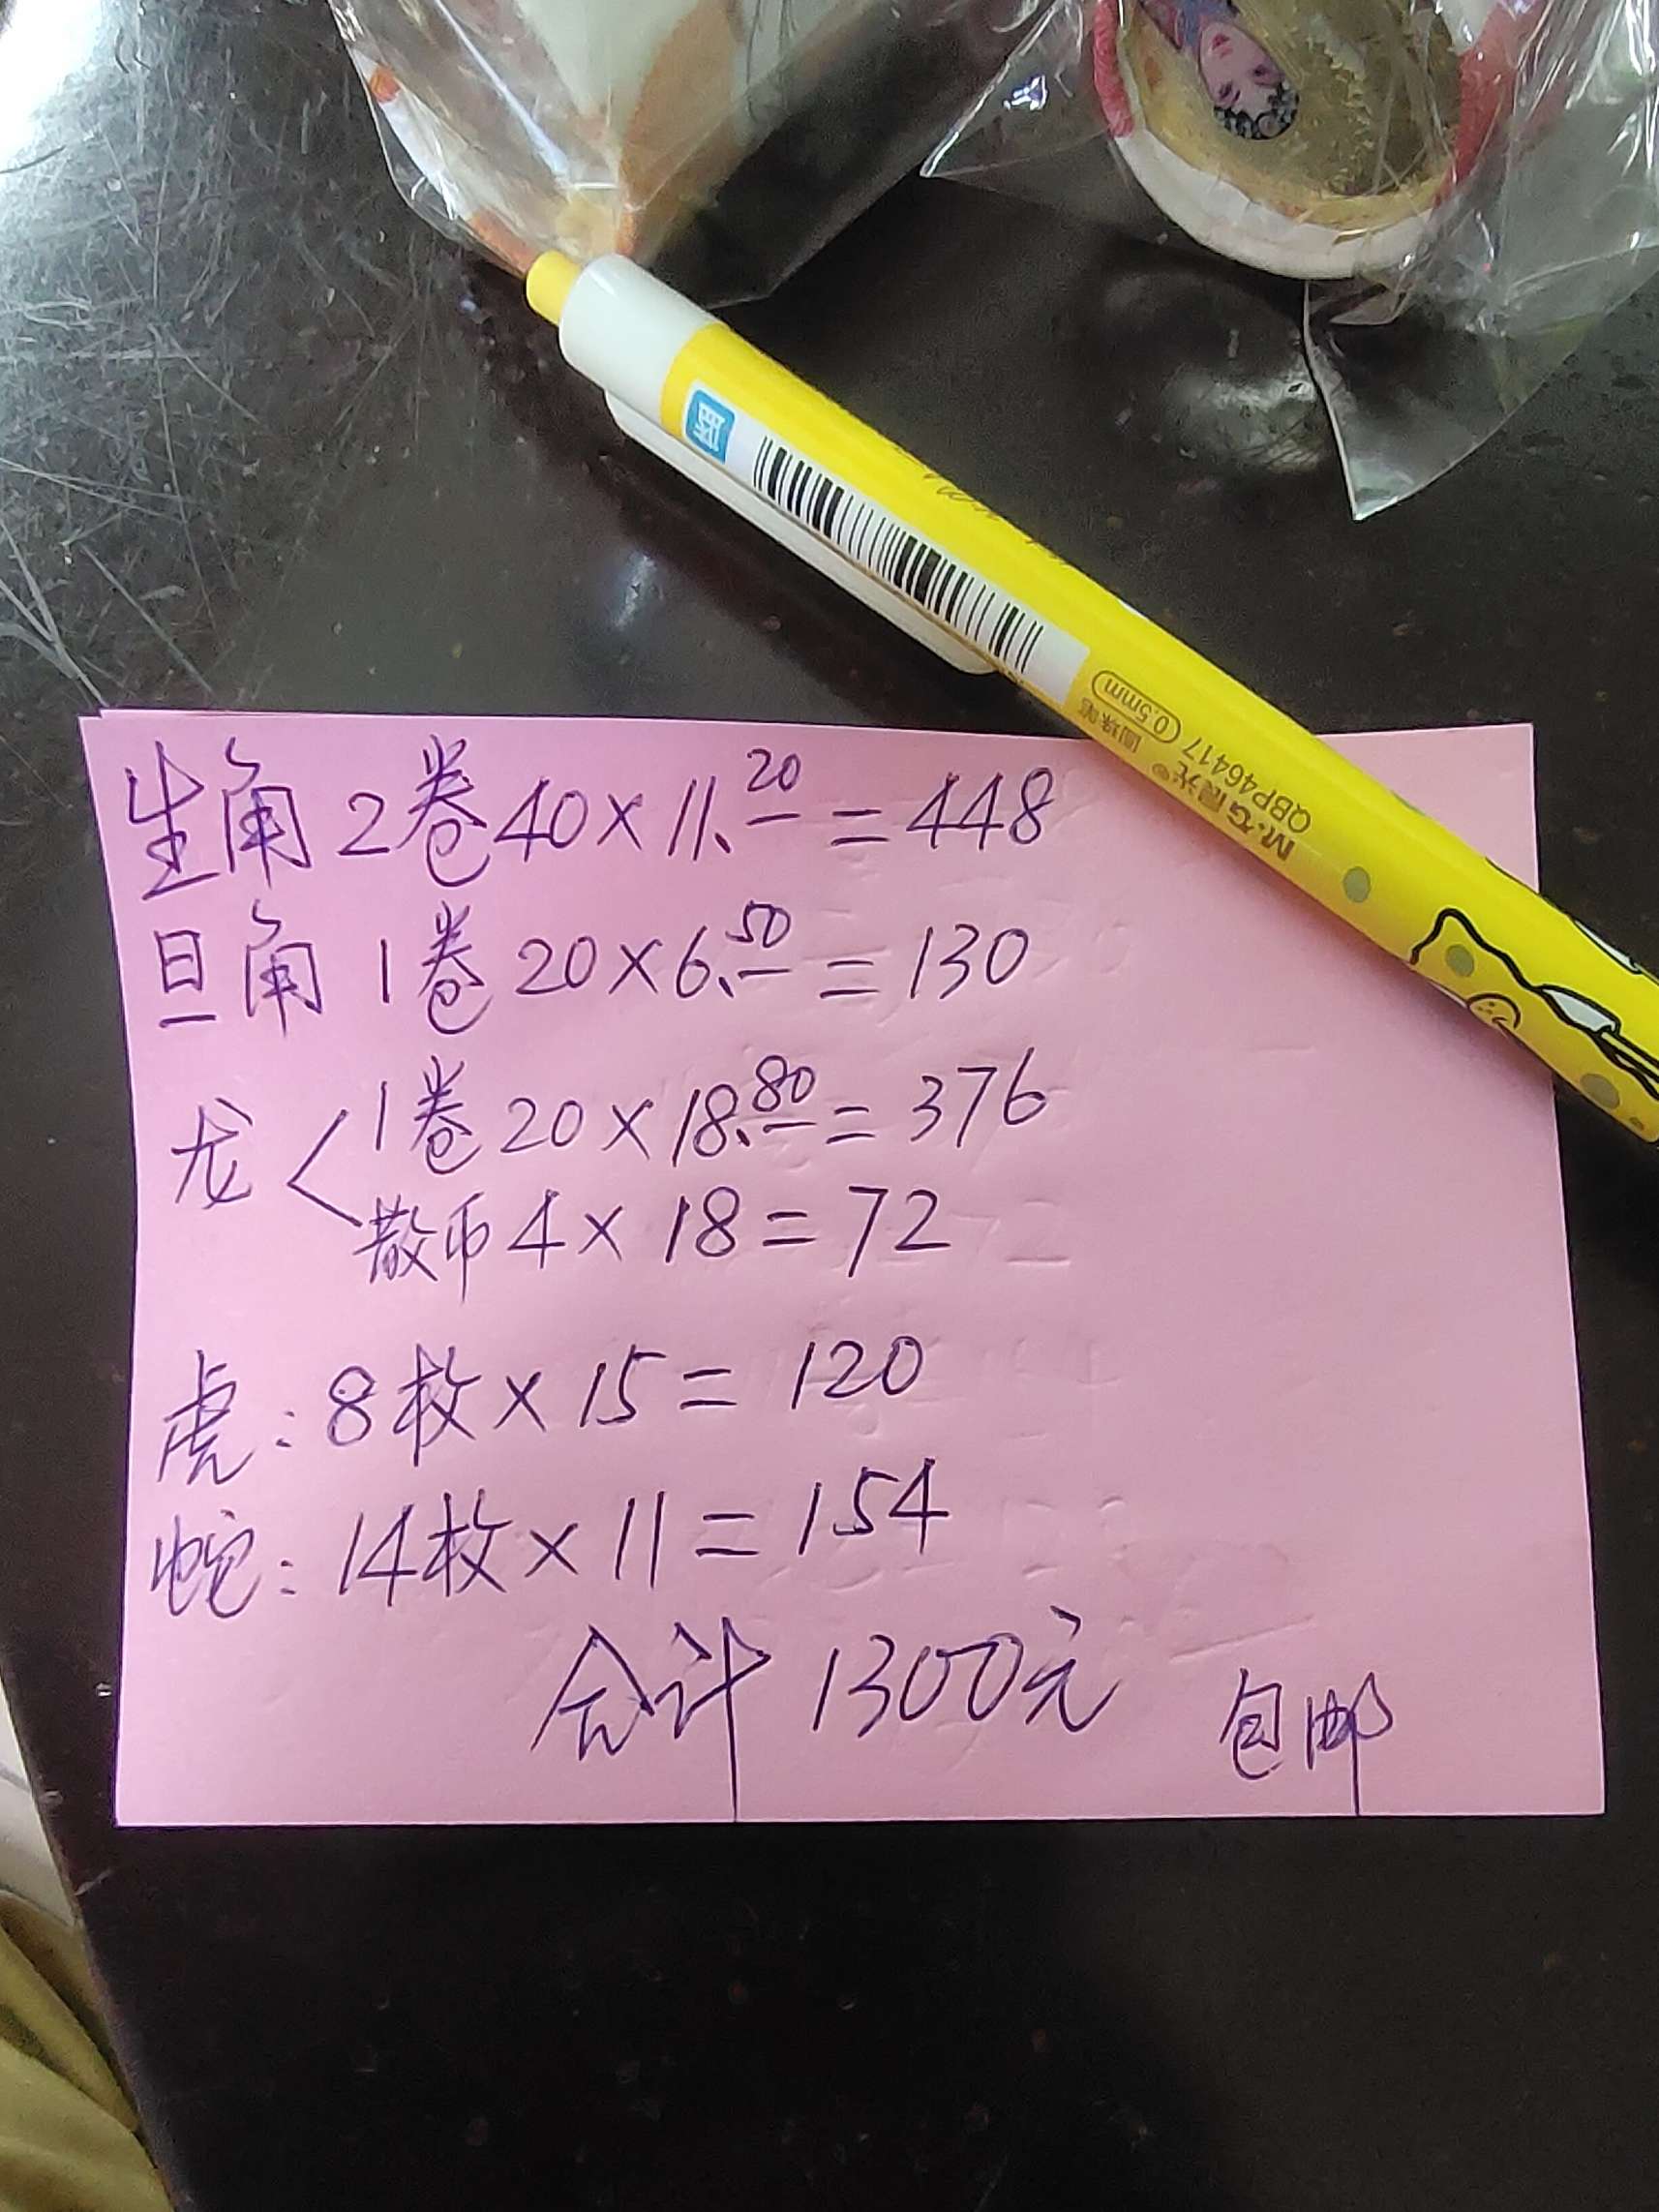 M&G晨光® 圆珠笔 0.5mm
QBP46417
生角 2卷 40×11.20=448
旦角 1卷 20×6.50=130
龙 1卷 20×18.80=376
散币 4×18=72
虎: 8枚×15=120
蛇: 14枚×11=154
合计 1300元 包邮